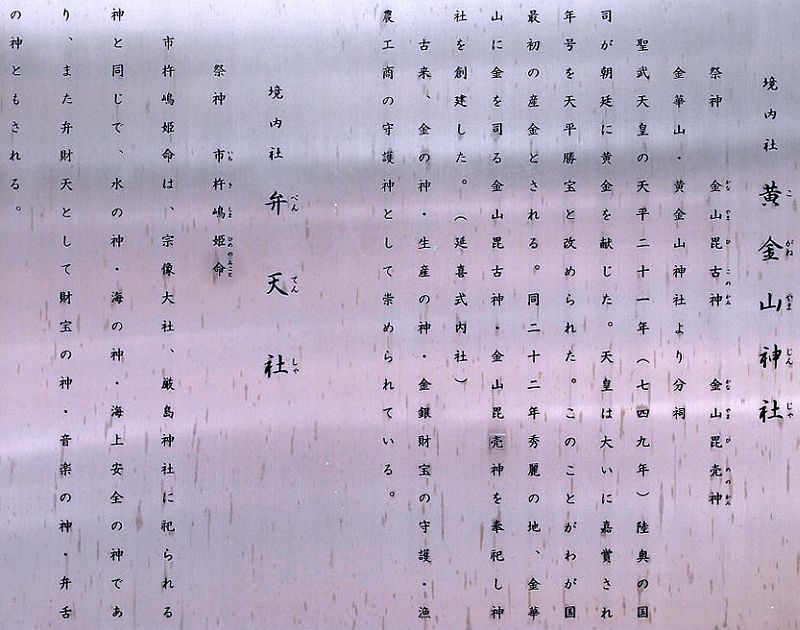 境内社 黄金山神社
こがねやまじんじゃ
祭神 金山毘古神 金山毘売神
かなやまひこのかみ かなやまひめのかみ
金華山・黄金山神社より分祠
聖武天皇の天平二十一年(七四九年)陸奥の国
司が朝廷に黄金を献じた。天皇は大いに嘉賞され
年号を天平勝宝と改められた。このことがわが国
最初の産金とされる。同二十二年秀麗の地、金華
山に金を司る金山毘古神・金山毘売神を奉祀し神
社を創建した。(延喜式内社)
古来、金の神・生産の神・金銀財宝の守護・漁
農工商の守護神として崇められている。
境内社 弁天社
べんてんしゃ
祭神 市杵嶋姫命
いちきしまひめのみこと
市杵嶋姫命は、宗像大社、厳島神社に祀られる
神と同じで、水の神・海の神・海上安全の神であ
り、また弁財天として財宝の神・音楽の神・弁舌
の神ともされる。